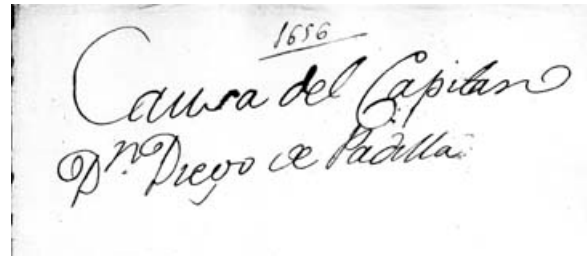 1656
Caussa del Capitan
Dn. Diego de Padilla